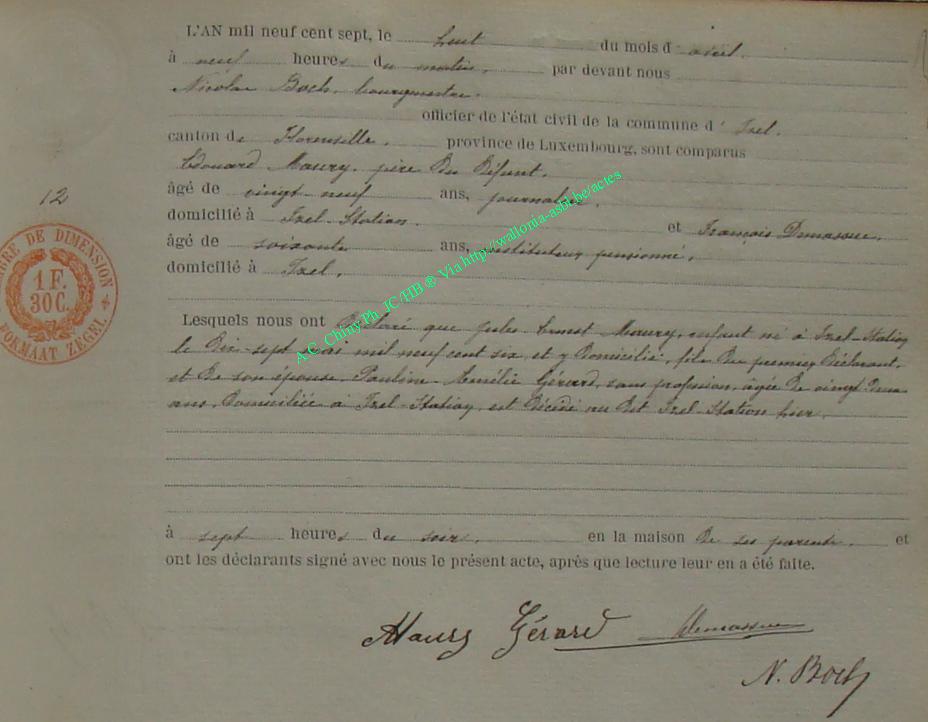 L'AN mil neuf cent sept, le huit du mois d'avril.
à neuf heures du matin, par devant nous
Nicolas Boch, bourgmestre.
officier de l'état civil de la commune d'Izel.
canton de Florenville, province de Luxembourg, sont comparus
Edouard Maury, père du défunt,
âgé de vingt neuf ans, journalier,
domicilié à Izel-Station. et François Demasue,
âgé de soixante ans, instituteur pensionné,
domicilié à Izel,
12
TIMBRE DE DIMENSION
1 F.
30 C.
FORMAAT ZEGEL
Lesquels nous ont déclaré que Jules Ernest Maury, enfant né à Izel-Station
le dix-sept mars mil neuf cent six, et y domicilié, fils du premier déclarant,
et de son épouse, Pauline Amélie Gérard, sans profession, âgée de vingt deux
ans, domiciliée à Izel-Station, est décédé au dit Izel-Station hier,
à sept heures du soir, en la maison de ses parents, et
ont les déclarants signé avec nous le présent acte, après que lecture leur en a été faite.
Maury Gérard Demasue
N. Boch
A.C. Chiny Ph JC/HB ® Via http://wallonia-asbl.be/actes